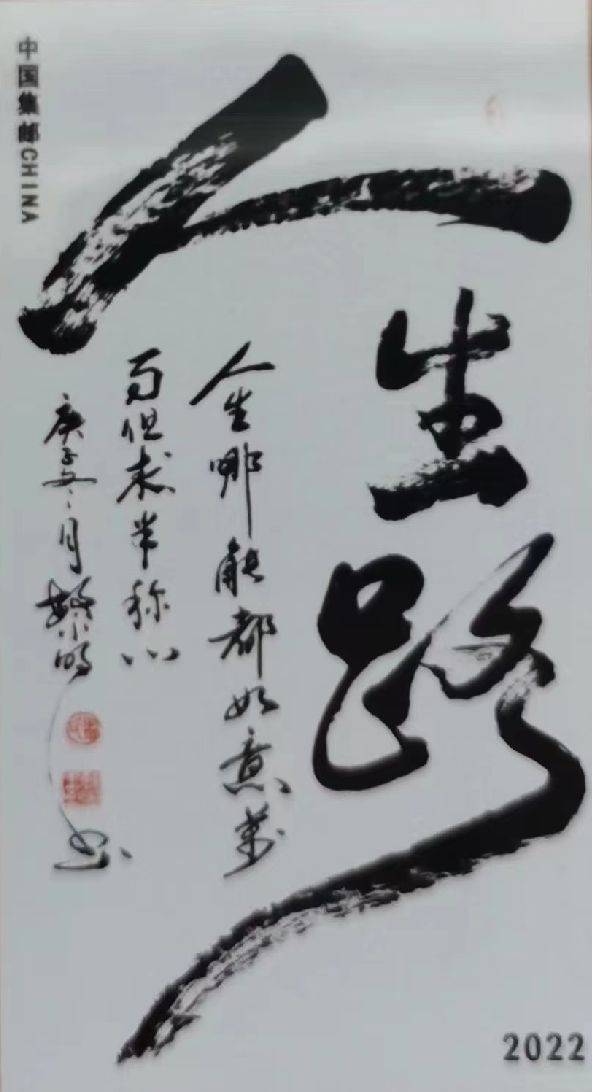 中国集邮CHINA
人生路
人生哪能都如意万
事但求半称心
庚子年 月 黎明 书
2022